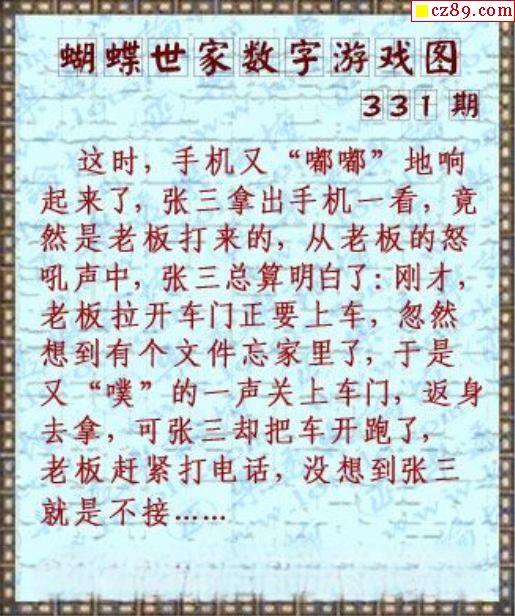 cz89.com
蝴蝶世家数字游戏图
331期
这时，手机又“嘟嘟”地响
起来了，张三拿出手机一看，竟
然是老板打来的，从老板的怒
吼声中，张三总算明白了：刚才，
老板拉开车门正要上车，忽然
想到有个文件忘家里了，于是
又“噗”的一声关上车门，返身
去拿，可张三却把车开跑了，
老板赶紧打电话，没想到张三
就是不接……